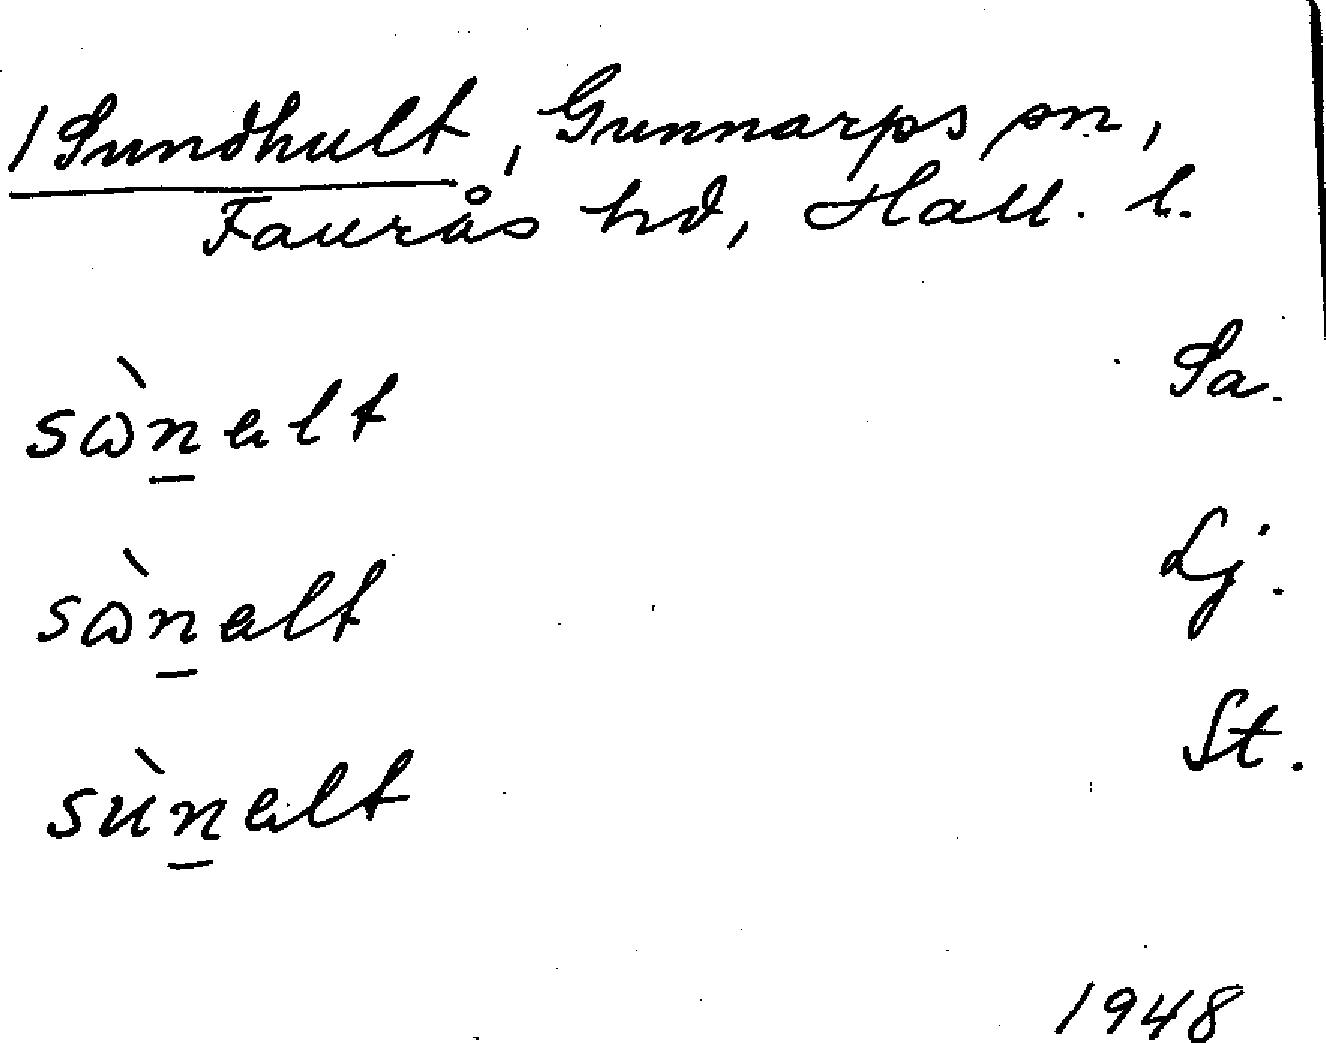 / Sundhult, Gunnarps sn,
Faurås hd, Hall. l.
sὼn̲ elt Sa.
sὼn̲ elt Lj.
sùn̲ elt St.
1948